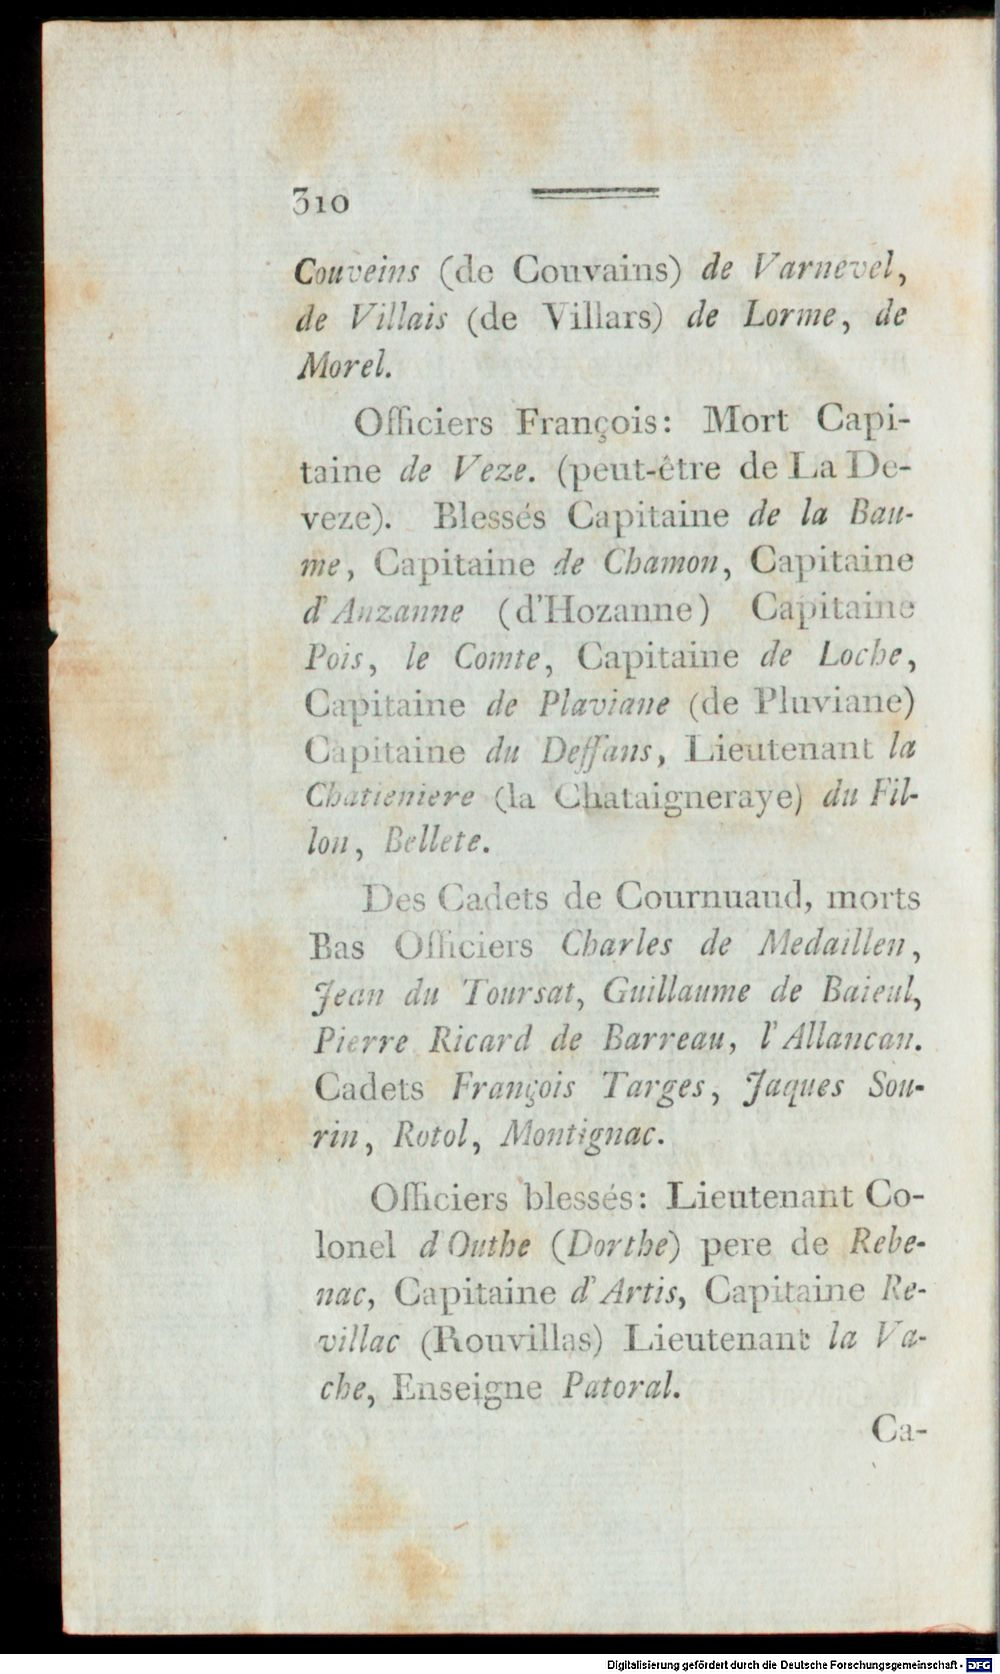 310
Couveins (de Couvains) de Varnevel,
de Villais (de Villars) de Lorme, de
Morel.
Officiers François: Mort Capi-
taine de Veze. (peut-être de La De-
veze). Blessés Capitaine de la Bau-
me, Capitaine de Chamon, Capitaine
d'Anzanne (d'Hozanne) Capitaine
Pois, le Comte, Capitaine de Loche,
Capitaine de Plaviane (de Pluviane)
Capitaine du Deffans, Lieutenant la
Chatieniere (la Chataigneraye) du Fil-
lon, Bellete.
Des Cadets de Cournuaud, morts
Bas Officiers Charles de Medaillen,
Jean du Toursat, Guillaume de Baieul,
Pierre Ricard de Barreau, l'Allancan.
Cadets François Targes, Jaques Sou-
rin, Rotol, Montignac.
Officiers blessés: Lieutenant Co-
lonel d'Outhe (Dorthe) pere de Rebe-
nac, Capitaine d'Artis, Capitaine Re-
villac (Rouvillas) Lieutenant la Va-
che, Enseigne Patoral.
Ca-
Digitalisierung gefördert durch die Deutsche Forschungsgemeinschaft - DFG